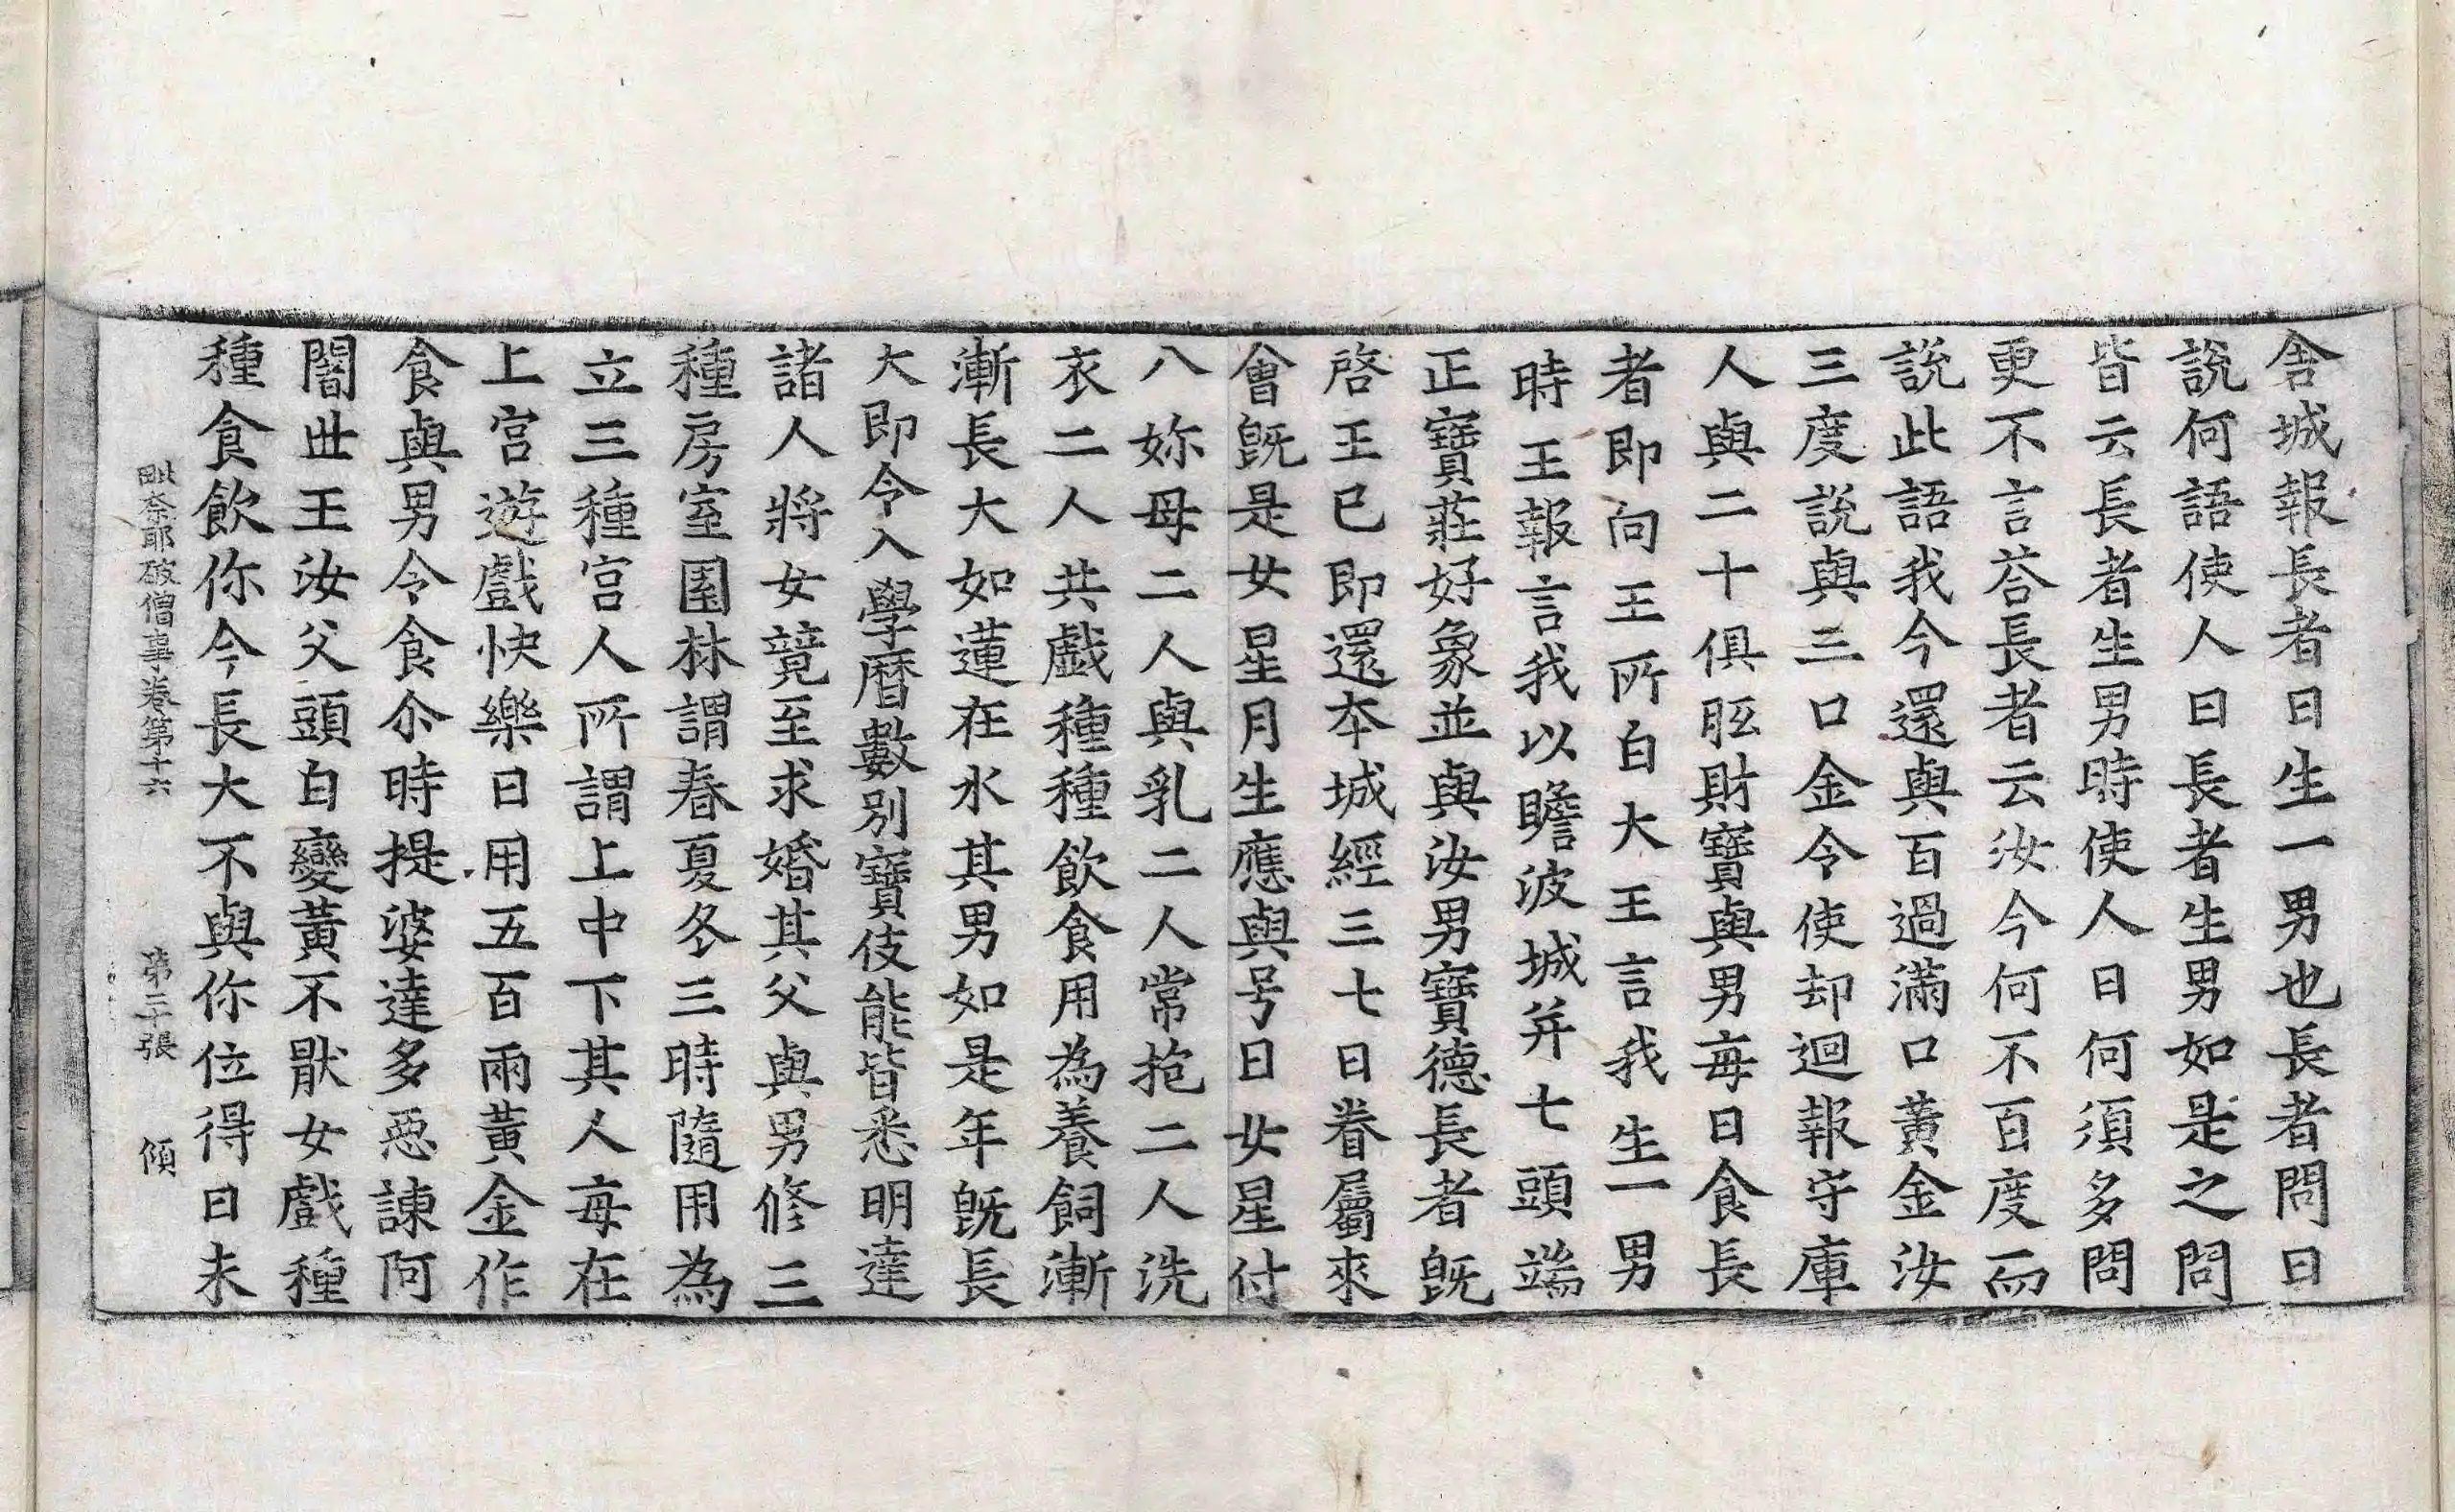 舎城報長者曰生一男也長者問曰
說何語使人曰長者生男如是之問
皆云長者生男時使人曰何須多問
更不言荅長者云汝今何不百度而
說此語我今還與百過滿口黃金汝
三度說與三口金令使却迴報守庫
人與二十俱胝財寶與男每日食長
者即向王所白大王言我生一男
時王報言我以瞻波城并七頭端
正寶莊好象並與汝男寶德長者旣
啓王已即還本城經三七日眷屬來
會旣是女星月生應與号曰女星付
八妳母二人與乳二人常抱二人洗
衣二人共戲種種飲食用為養飼漸
漸長大如蓮在水其男如是年旣長
大即令入學曆數別寶伎能皆悉明達
諸人將女競至求婚其父與男修三
種房室園林謂春夏冬三時隨用為
立三種宮人所謂上中下其人每在
上宮遊戲快樂日用五百兩黃金作
食與男令食尒時提婆達多惡諫阿
闍世王汝父頭白變黃不猒女戲種
種食飲你今長大不與你位得曰未
毗奈耶破僧事卷第十六 第三張 傾